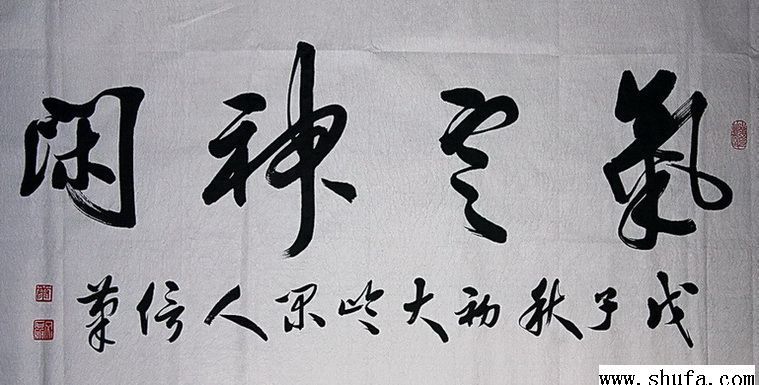 氣定神閑
戊子秋初大岭閑人信筆
www.shufa.com